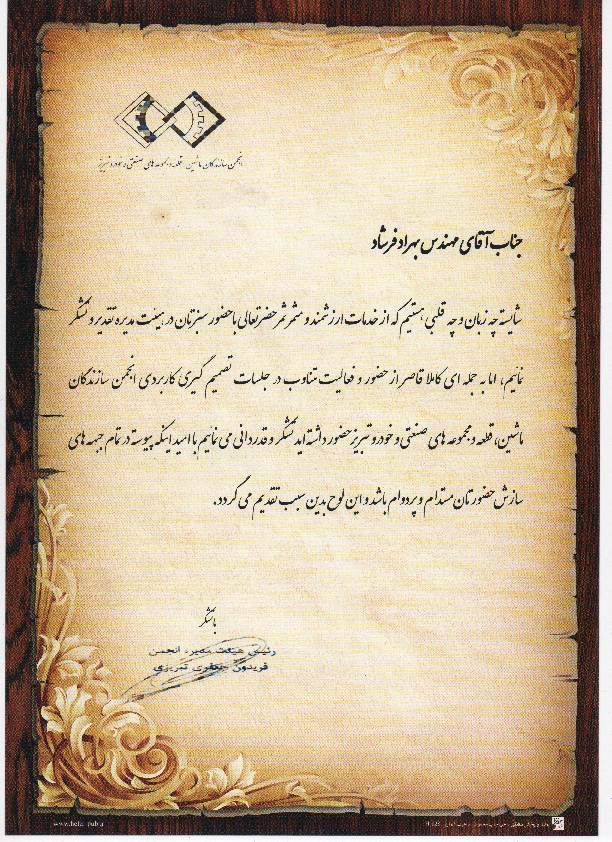 انجمن سازندگان ماشین، قطعه و مجموعه های صنعتی و خودرو تبریز
جناب آقای مهندس بهراد فرشاد
شایسته چه زبان و چه قلبی هستیم که از خدمات ارزشمند و مثمر ثمر حضرتعالی با حضور سبزتان در هیئت مدیره تقدیر و تشکر
نمائیم، اما به جمله ای کاملا قاصر از حضور و فعالیت متناوب در جلسات تصمیم گیری کاربردی انجمن سازندگان
ماشین، قطعه و مجموعه های صنعتی و خودرو تبریز حضور داشته اید تشکر و قدردانی می نمایم با امید اینکه پیوسته در تمام جبهه های
سازش حضورتان مستدام و پردوام باشد و این لوح بدین سبب تقدیم می گردد.
با تشکر
رئیس هیئت مدیره انجمن
فریدون جعفری تبریزی